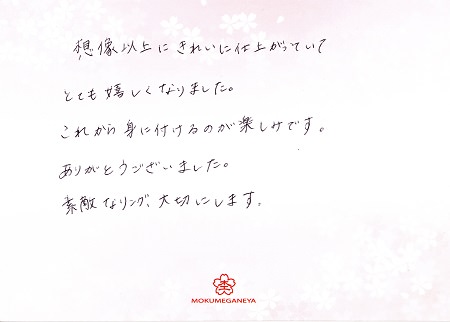 想像以上にきれいに仕上がっていて
とても嬉しくなりました。
これから身に付けるのが楽しみです。
ありがとうございました。
素敵なリング、大切にします。
杢
MOKUMEGANEYA